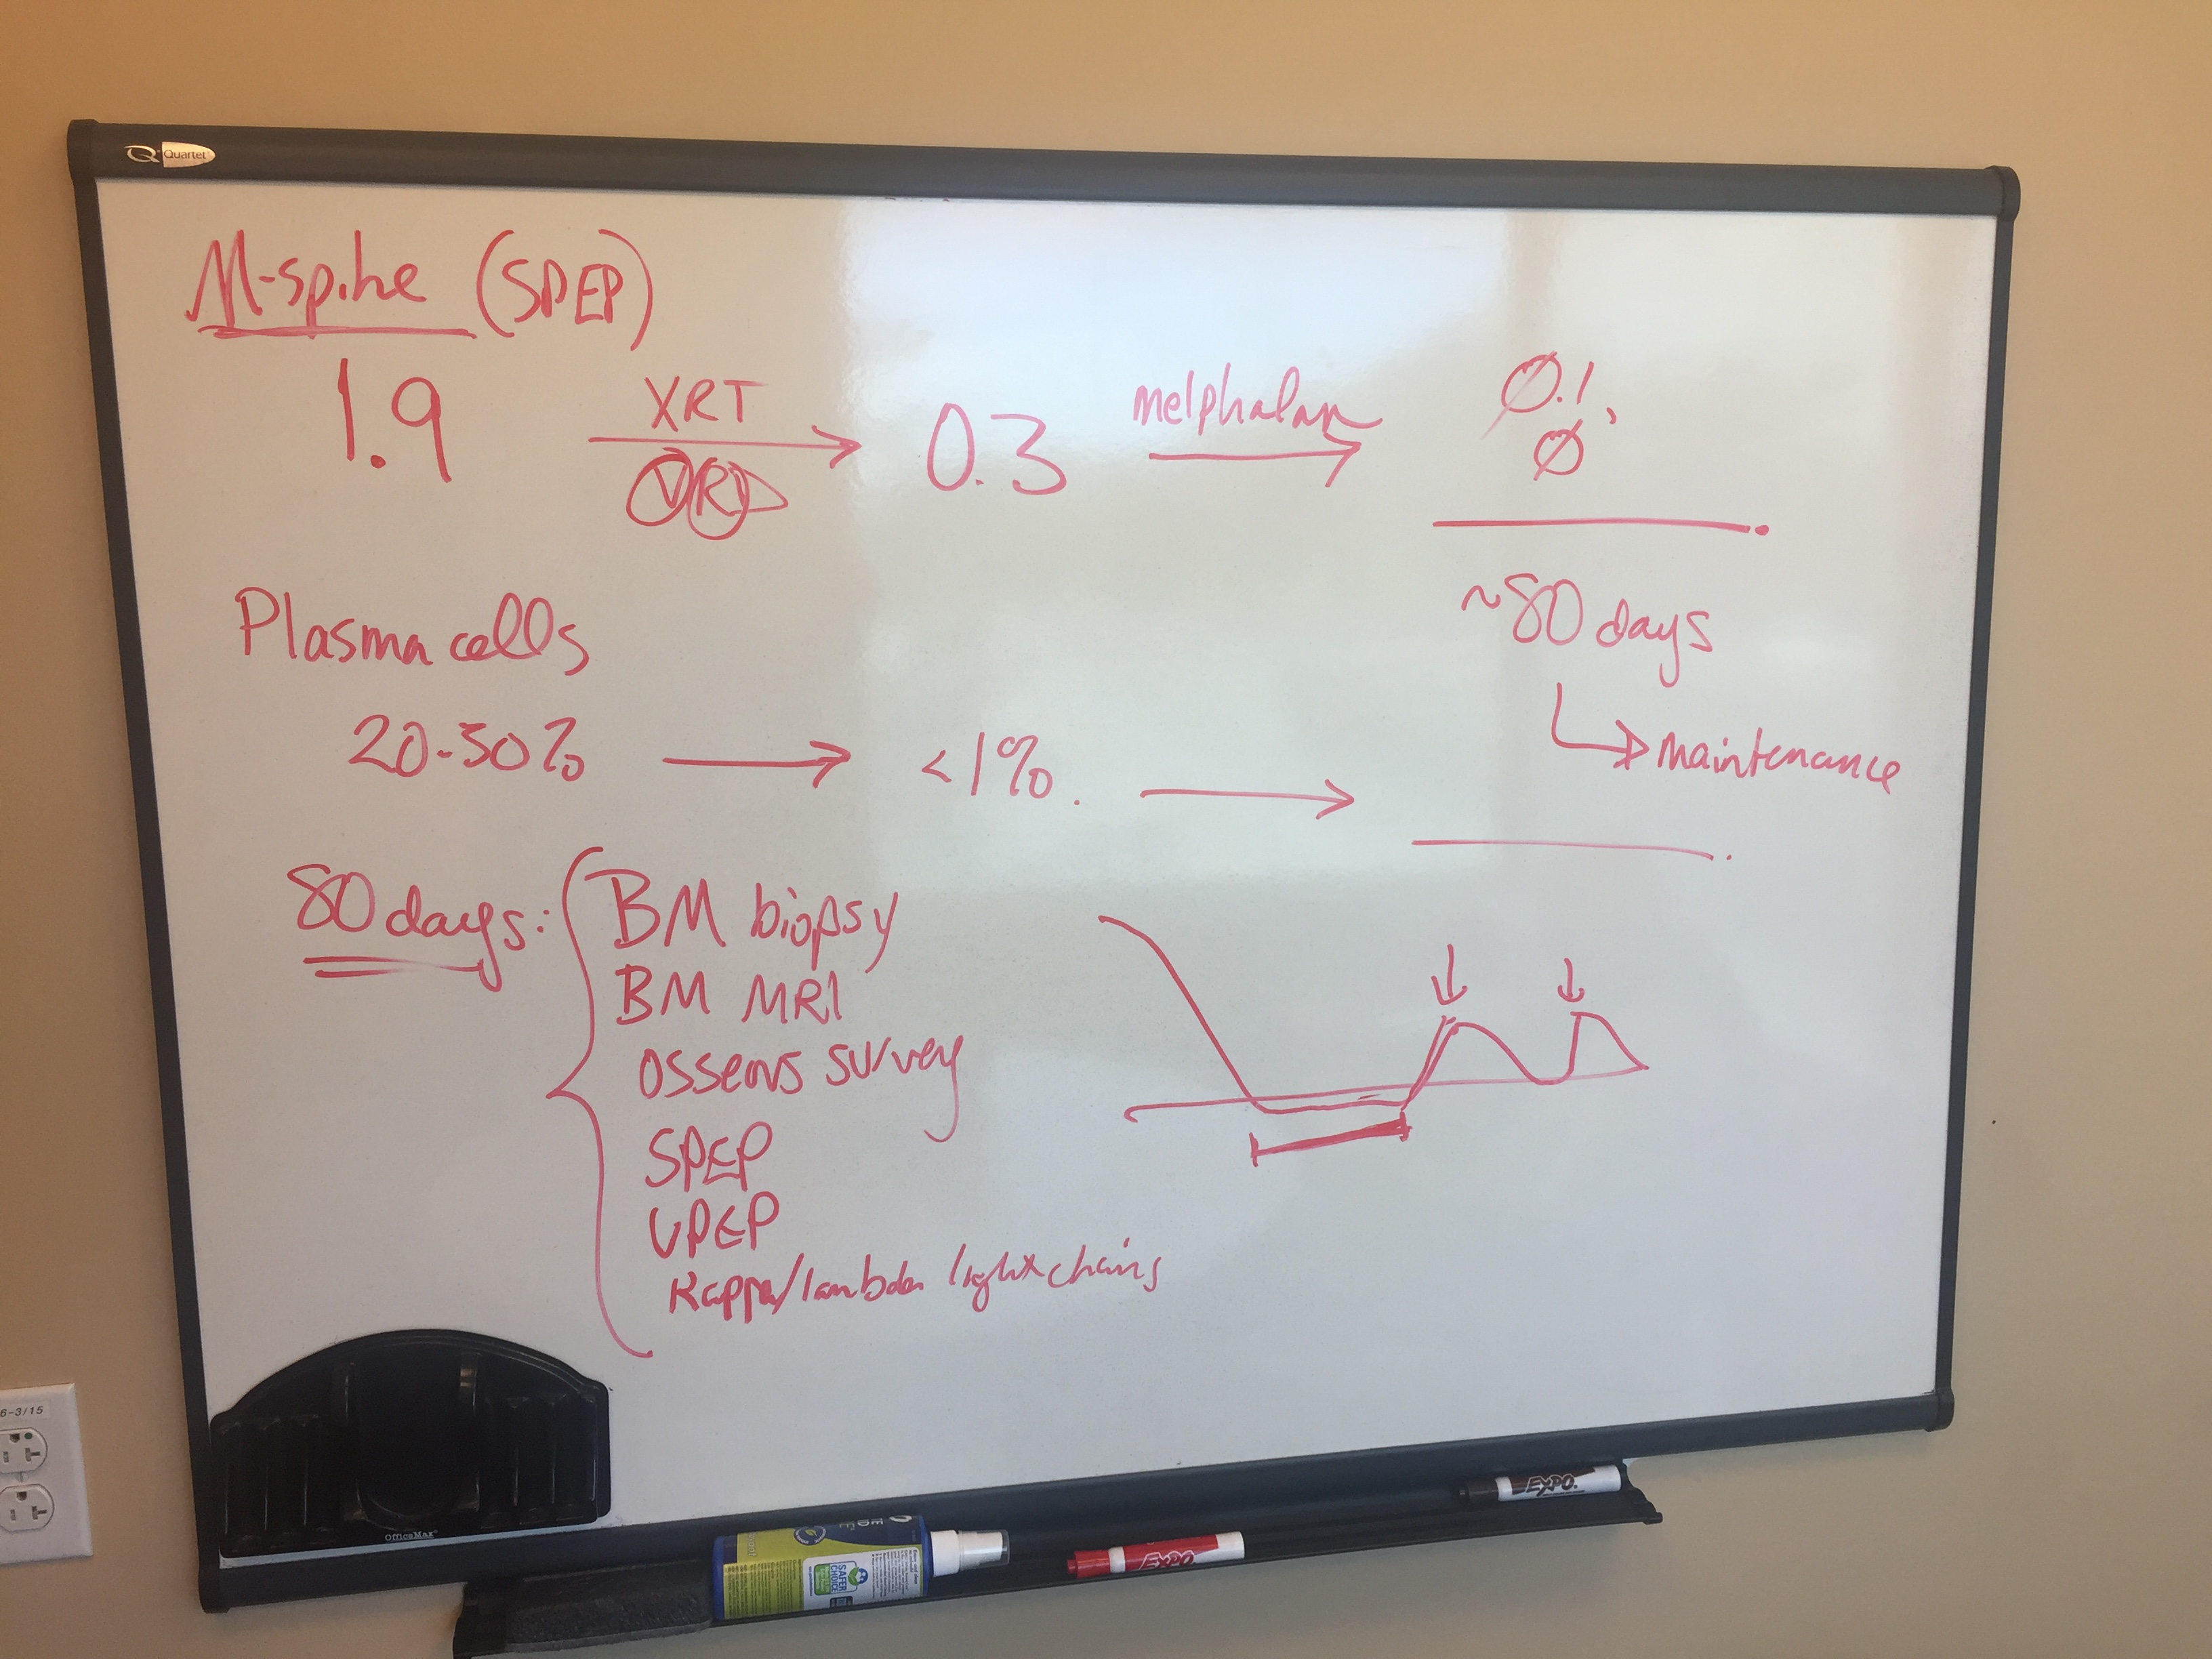 Quartet
M-spike (SPEP)
1.9 XRT → 0.3 melphalan → Ø.1,
VRD Ø
Plasma cells ~80 days
20-50% → <1%. → maintenance
80 days: BM biopsy
BM MRI
osseous survey
SPEP
UPEP
Kappa/lambda light chains
6-3/15
OfficeMax
SAFER
CHOICE
EXPO
EXPO